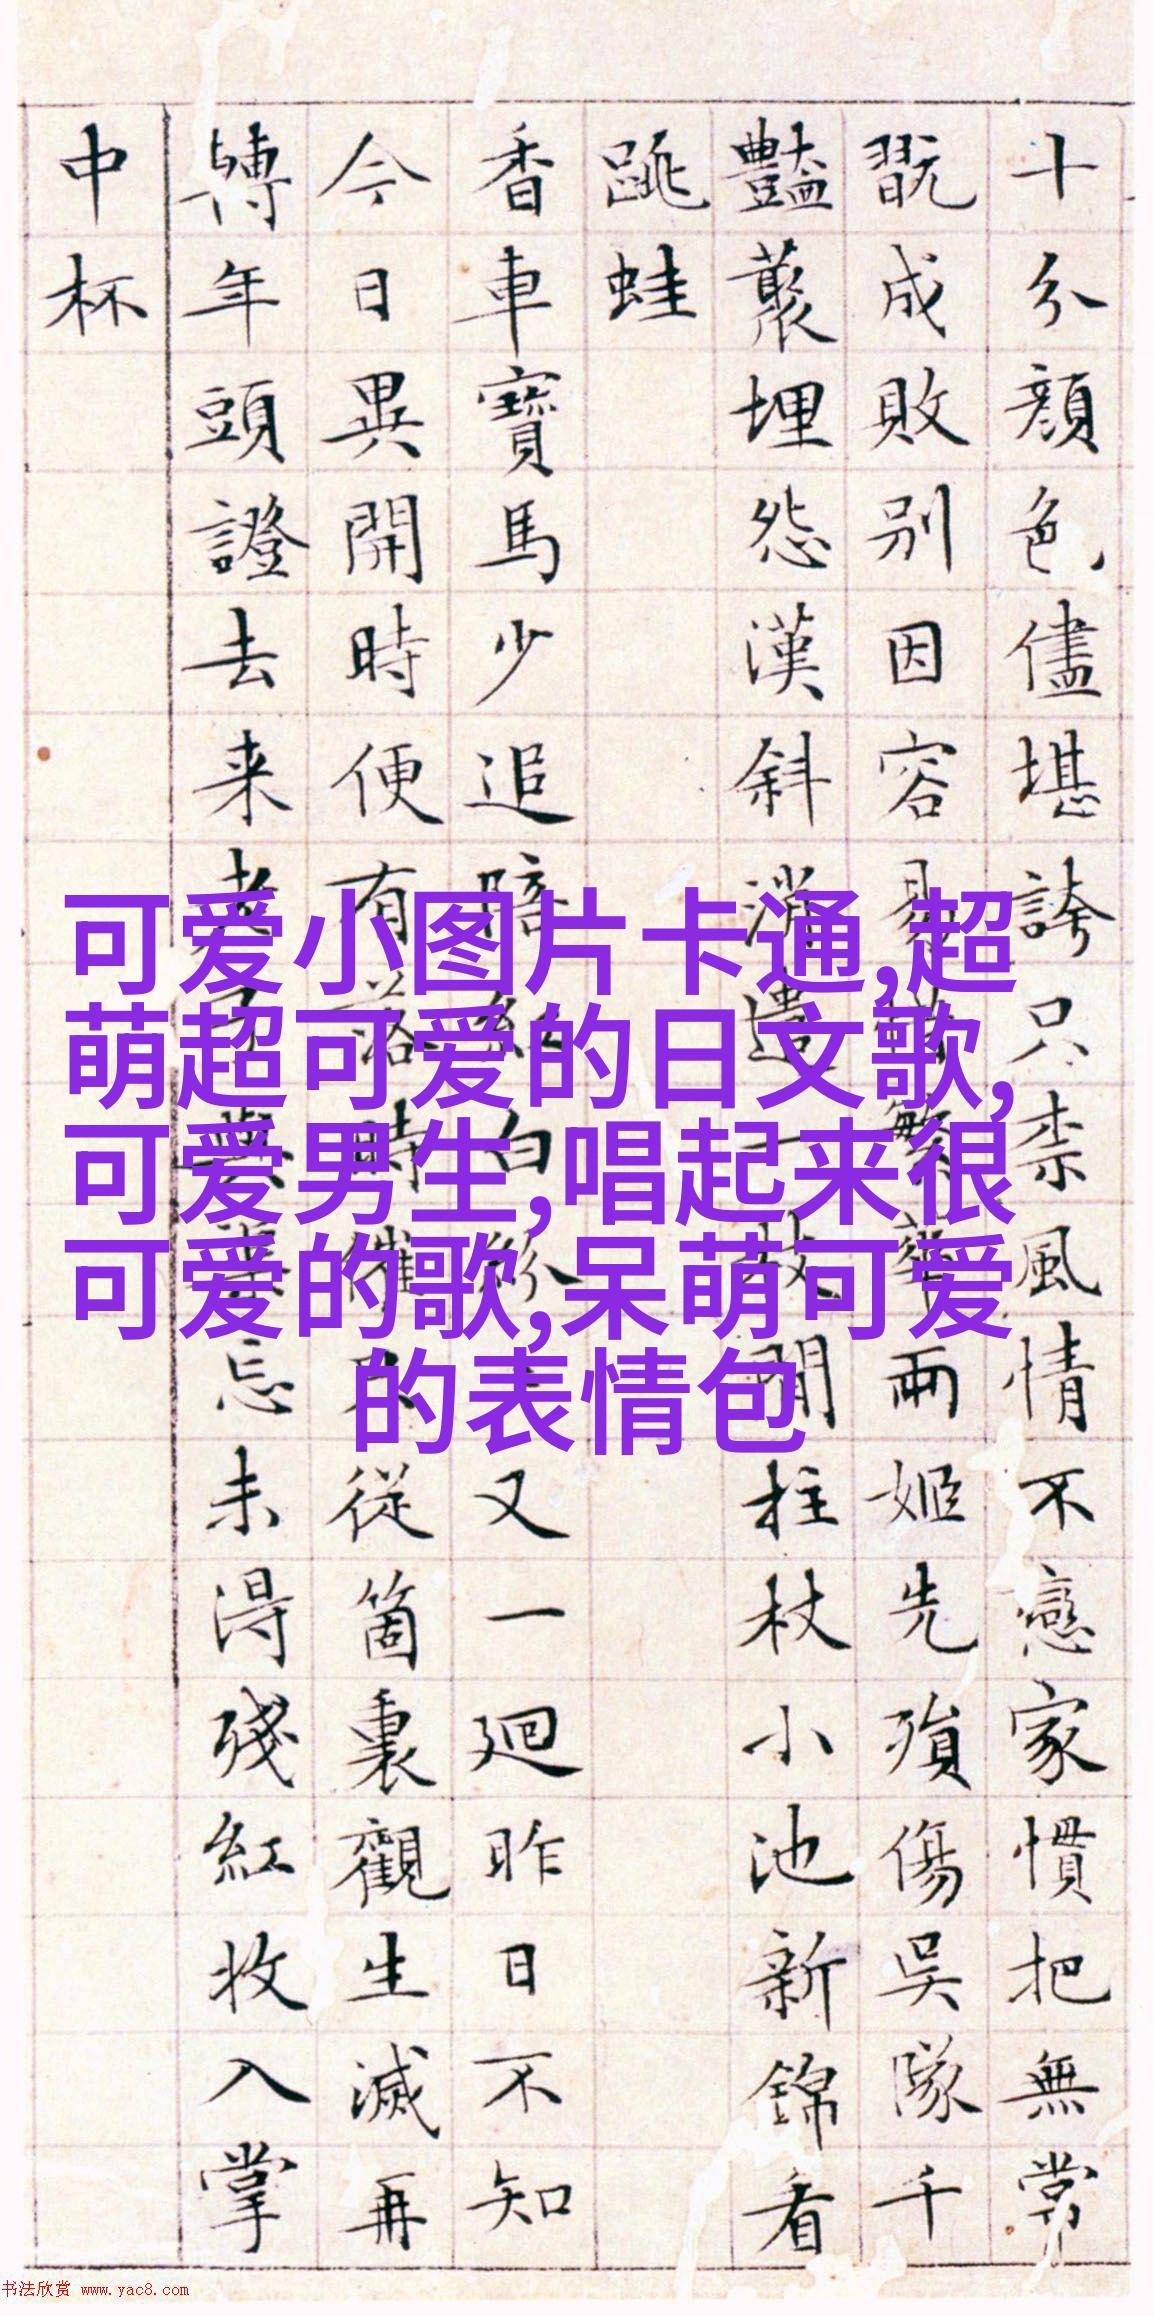 十分顔色儘堪誇只柰風情不戀家慣把無常
翫成敗別因容易惜繁華兩姬先殞傷吳隊千
豔叢埋怨漢斜消遣一枝閒柱杖小池新錦看
跳蛙
香車寶馬少追陪紅白紛又一廻昨日不知
今日異開時便有落時催只從箇裏觀生滅再
轉年頭證去来老子與渠忘未得殘紅收入掌
中杯
可爱小图片卡通,超
萌超可爱的日文歌,
可爱男生,唱起来很
可爱的歌,呆萌可爱
的表情包
书法欣赏 www.yac8.com